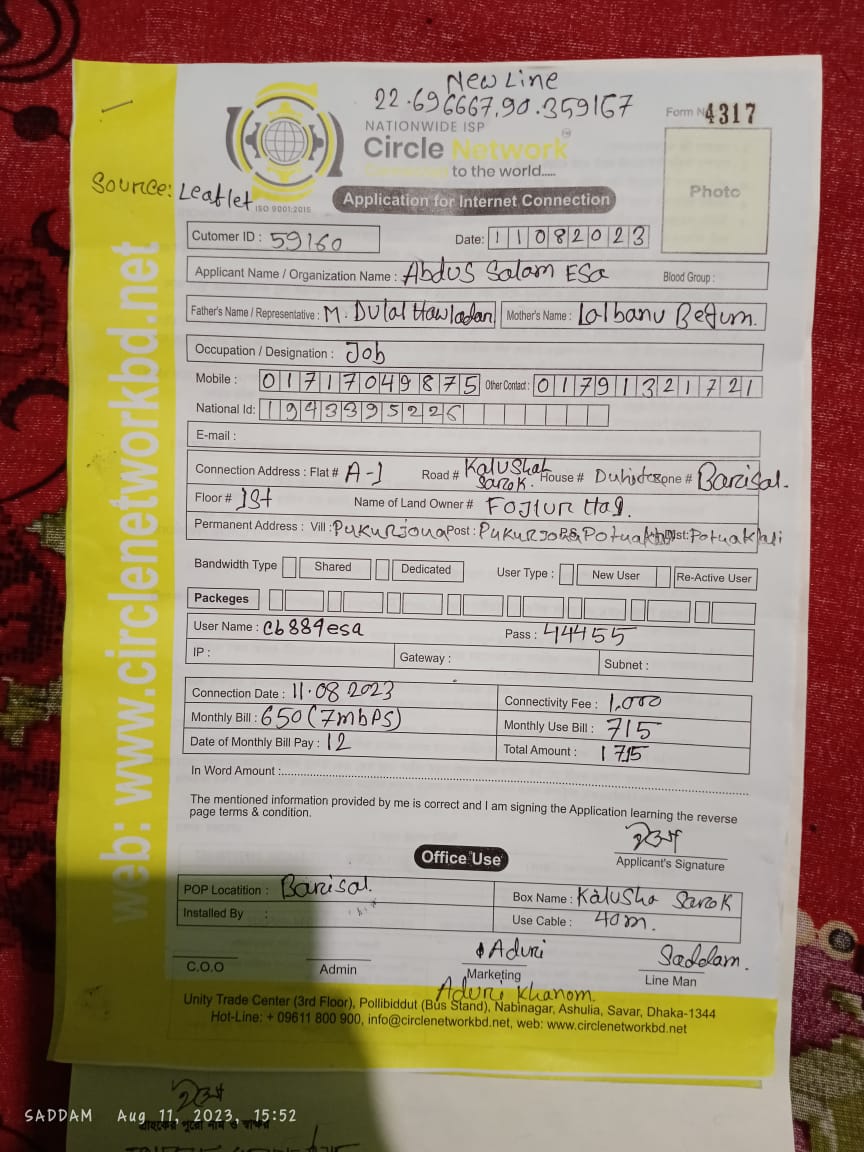 New Line
22.696667,90.359167
Form No 4317
NATIONWIDE ISP
Circle Network
Connected to the world.....
Photo
Source: Leaflet
ISO 9001:2015
Application for Internet Connection
Cutomer ID : 59160 Date: 11082023
Applicant Name / Organization Name : Abdus Salam Esa Blood Group :
Father's Name / Representative : M. Dulal Howladar Mother's Name : Lalbanu Begum.
Occupation / Designation : Job
Mobile : 01717049875 Other Contact : 01791321721
National Id: 1943395226
E-mail :
Connection Address : Flat # A-1 Road # Kalushah Sarok. House # Zone # Barisal.
Floor # 1st Name of Land Owner # Fojlur Haq.
Permanent Address : Vill : Pukurjona Post : Pukurjona PS Potuakhali Dist: Potuakhali
Bandwidth Type Shared Dedicated User Type : New User Re-Active User
Packeges
User Name : cb884esa Pass : 44455
IP : Gateway : Subnet :
Connection Date : 11.08 2023 Connectivity Fee : 1,000
Monthly Bill : 650 (7mbps) Monthly Use Bill : 715
Date of Monthly Bill Pay : 12 Total Amount : 1715
In Word Amount :
The mentioned information provided by me is correct and I am signing the Application learning the reverse
page terms & condition.
Applicant's Signature
Office Use
POP Locatition : Barisal. Box Name : Kalusha Sarok
Installed By : Use Cable : 40m.
Aduri Saddam.
C.O.O Admin Marketing Line Man
Aduri Khanom.
Unity Trade Center (3rd Floor), Pollibiddut (Bus Stand), Nabinagar, Ashulia, Savar, Dhaka-1344
Hot-Line: + 09611 800 900, info@circlenetworkbd.net, web: www.circlenetworkbd.net
web: www.circlenetworkbd.net
SADDAM Aug 11, 2023, 15:52